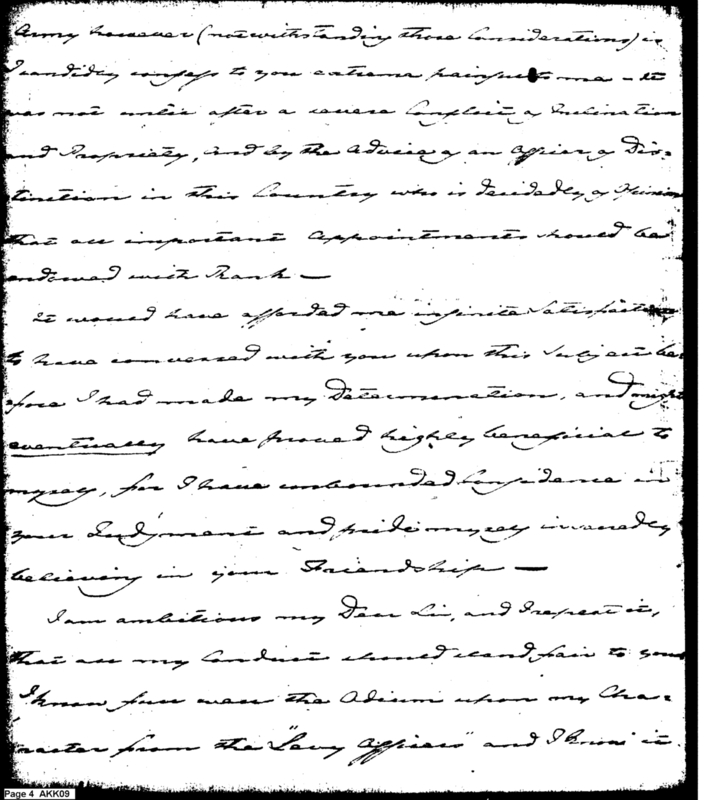 Army however (notwithstanding those Considerations) is
I candidly confess to you extreme painful to me – It
was not until after a severe Conflict of Inclination
and Propriety, and by the Advice of an Officer of Dis=
tinction in this Country who is decidedly of Opinion
that all important Appointments should be
endowed with Rank —
It would have afforded me infinite Satisfaction
to have conversed with you upon this Subject be=
fore I had made my Determination, and might
eventually have proved highly beneficial to
myself, for I have unbounded Confidence in
your Judgment and pride myself inwardly
believing in your Friendship —
I am ambitious my Dear Sir, and I repeat it,
that all my Conduct should stand fair to you
I know full well the Odium upon my Cha=
racter from the "Levy Officers" and I know it
Page 4 AKK09